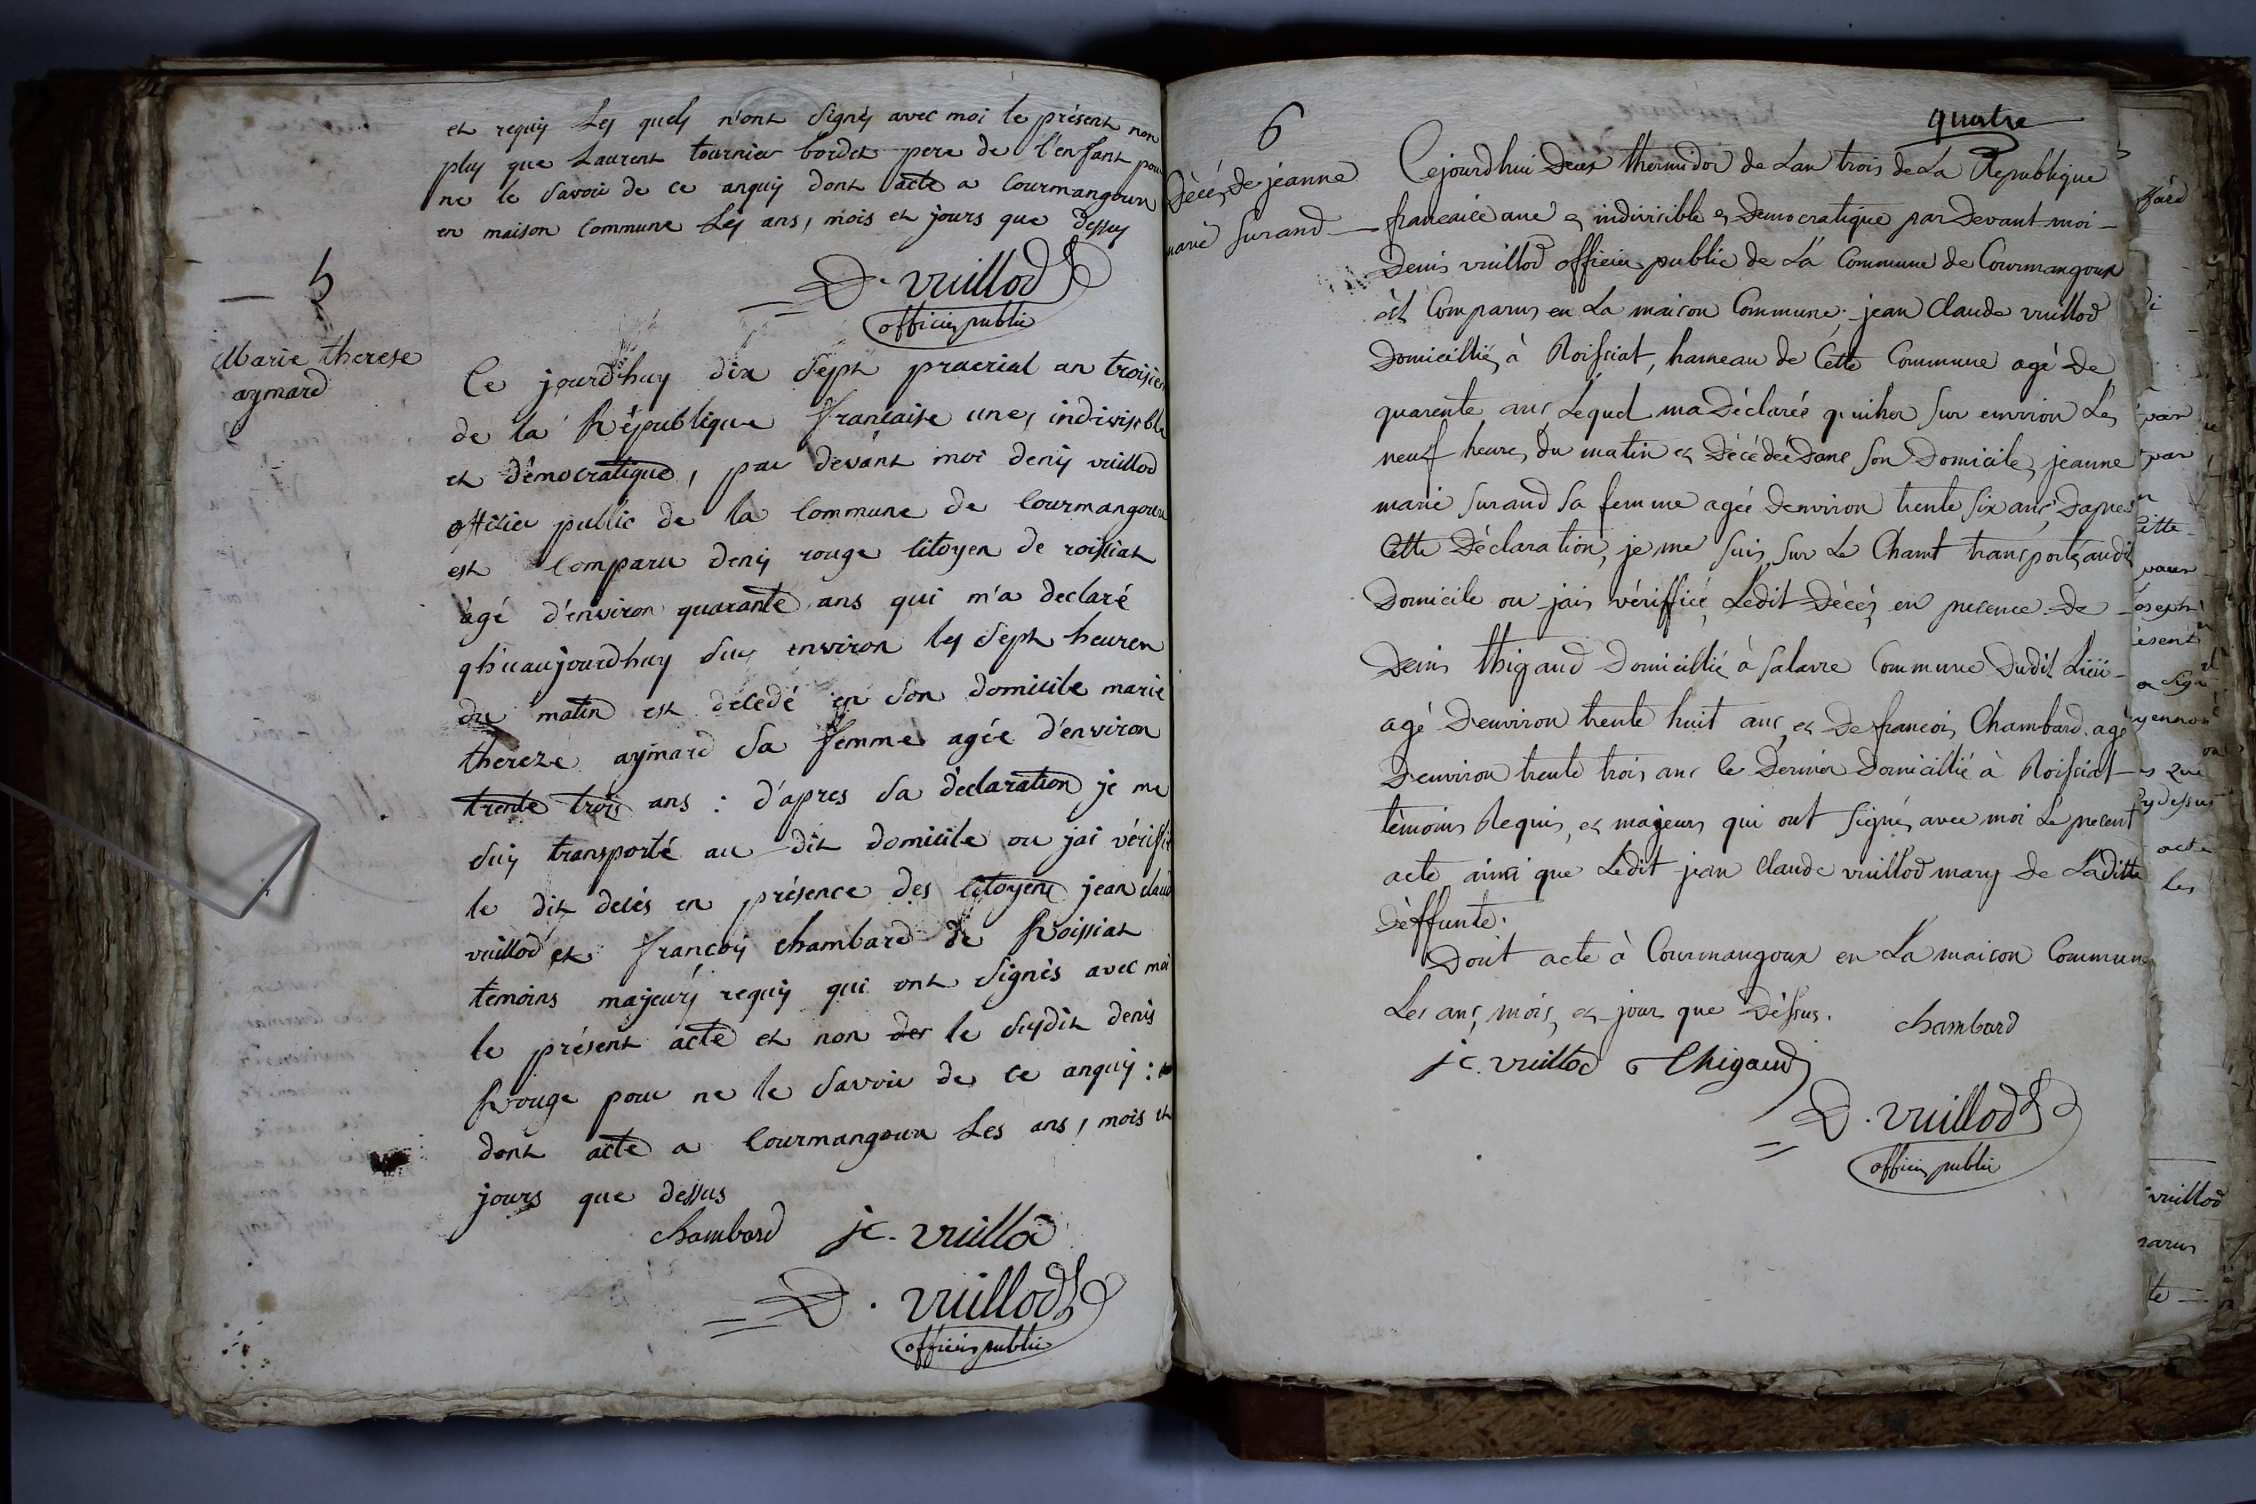 et requis Les quels n'ont signés avec moi le présent non
plus que Laurent tournier bordet pere de l'enfant pour
ne le savoir de ce anquis dont acte a Courmangoux
en maison commune Les ans, mois et jours que dessus
D. vuillod
officier public
5
Marie therese
aymard
Ce jourd'huy dix sept praerial an troisiem
de la République francaise une, indivisible
et démocratique, par dévant moi denis vuillod
officier public de la commune de Courmangoux
est comparu denis rouge citoyen de roissiat
âgé d'environ quarante ans qui m'a declaré
qh'uaujourdhuy sur environ les sept heuren
du matin est décedé en son domicile marie
thereze aymard sa femme agée d'environ
trente trois ans : d'apres sa déclaration je me
suis transporté au dit domicile ou jai vériffié
le dit decés en présence des citoyens jean claud
vuillod et francois chambard de Roissiat
temoins majeurs requis qui ont signés avec moi
le présent acte et non des le susdit denis
Rouge pour ne le savoir de ce anquis :
dont acte a Courmangoux Les ans, mois et
jours que dessus
chambard jc. vuillod
D. vuillod
officier public
quatre
6
Décés de jeanne
marie surand
Cejourdhui Deux thermidor de Lan trois de La Republique
francaice une et indivicible et Democratique par Devant moi
Denis vuillod officier public de La Commune de Courmangoux
èst Comparus en La maicon Commune, jean Claude vuillod
Domicillié à Roissiat, hameau de Cette Commune agé de
quarente ans Lequel ma Déclarée quiher sur environ Les
neuf heures du matin et Décédée Dans son Domicile, jeanne
marie surand sa femme agée Denviron trente six ans, Dapres
Cette Déclaration, je me suis sur Le Chamt transporté, audit
Domicile ou jais vériffié, Ledit Décés en precence De
Denis thigaud Domicillié à salavre Commune Dudit Lieü
agé Denviron trente huit ans et De francois Chambard agé
Denviron trente trois ans ce Dernier Domicillié à Roissiat
tèmoins Requis, et majeurs qui ont signés avec moi Le precent
acte ainsi que Ledit jean Claude vuillod mary de Laditte
Dèffunte.
Dont acte à Courmangoux en La maison Commune
Les ans, mois, et jour que Dèssus.
chambard
jc. vuillod Thigaud
D. vuillod
officier public